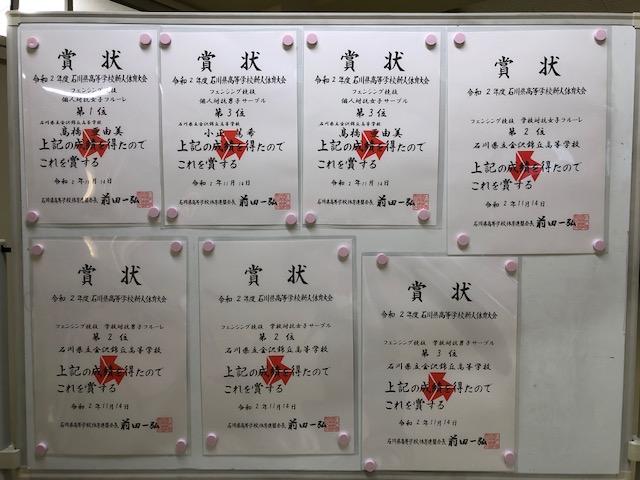 賞状
令和2年度 石川県高等学校新人体育大会
フェンシング競技
個人対抗女子フルーレ
第1位
石川県立金沢錦丘高等学校
髙橋 亜由美
上記の成績を得たので
これを賞する
令和2年11月14日
石川県高等学校体育連盟会長 前田一弘
賞状
令和2年度 石川県高等学校新人体育大会
フェンシング競技
個人対抗男子サーブル
第3位
石川県立金沢錦丘高等学校
小正 希
上記の成績を得たので
これを賞する
令和2年11月14日
石川県高等学校体育連盟会長 前田一弘
賞状
令和2年度 石川県高等学校新人体育大会
フェンシング競技
個人対抗女子サーブル
第3位
石川県立金沢錦丘高等学校
髙橋 亜由美
上記の成績を得たので
これを賞する
令和2年11月14日
石川県高等学校体育連盟会長 前田一弘
賞状
令和2年度 石川県高等学校新人体育大会
フェンシング競技 学校対抗女子フルーレ
第2位
石川県立金沢錦丘高等学校
上記の成績を得たので
これを賞する
令和2年11月14日
石川県高等学校体育連盟会長 前田一弘
賞状
令和2年度 石川県高等学校新人体育大会
フェンシング競技 学校対抗男子フルーレ
第2位
石川県立金沢錦丘高等学校
上記の成績を得たので
これを賞する
令和2年11月14日
石川県高等学校体育連盟会長 前田一弘
賞状
令和2年度 石川県高等学校新人体育大会
フェンシング競技 学校対抗女子サーブル
第2位
石川県立金沢錦丘高等学校
上記の成績を得たので
これを賞する
令和2年11月14日
石川県高等学校体育連盟会長 前田一弘
賞状
令和2年度 石川県高等学校新人体育大会
フェンシング競技 学校対抗男子サーブル
第3位
石川県立金沢錦丘高等学校
上記の成績を得たので
これを賞する
令和2年11月14日
石川県高等学校体育連盟会長 前田一弘